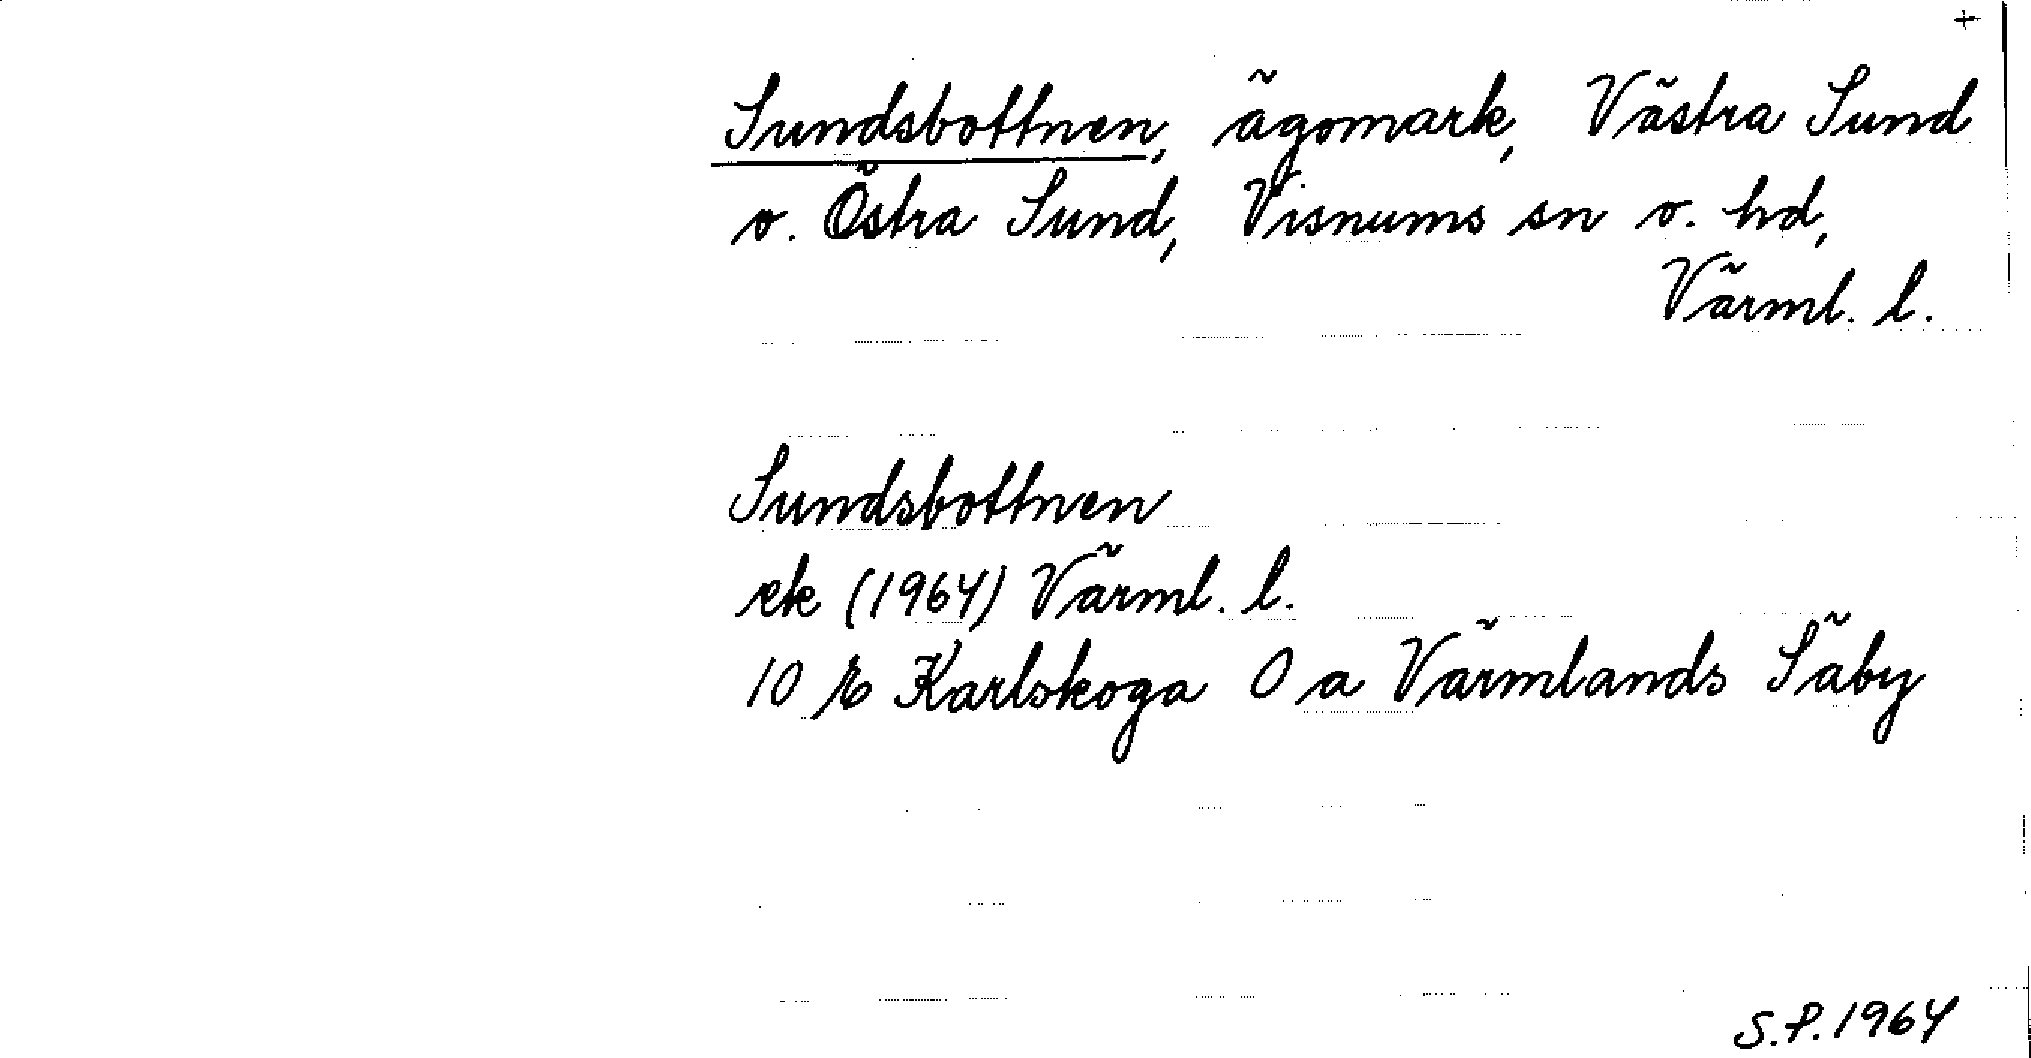 +
Sundsbottnen, ägomark, Västra Sund
o. Östra Sund, Visnums sn o. hd,
Värml. l.
Sundsbottnen
ek (1964) Värml. l.
10 E Karlskoga 0 a Värmlands Säby
S.P. 1964